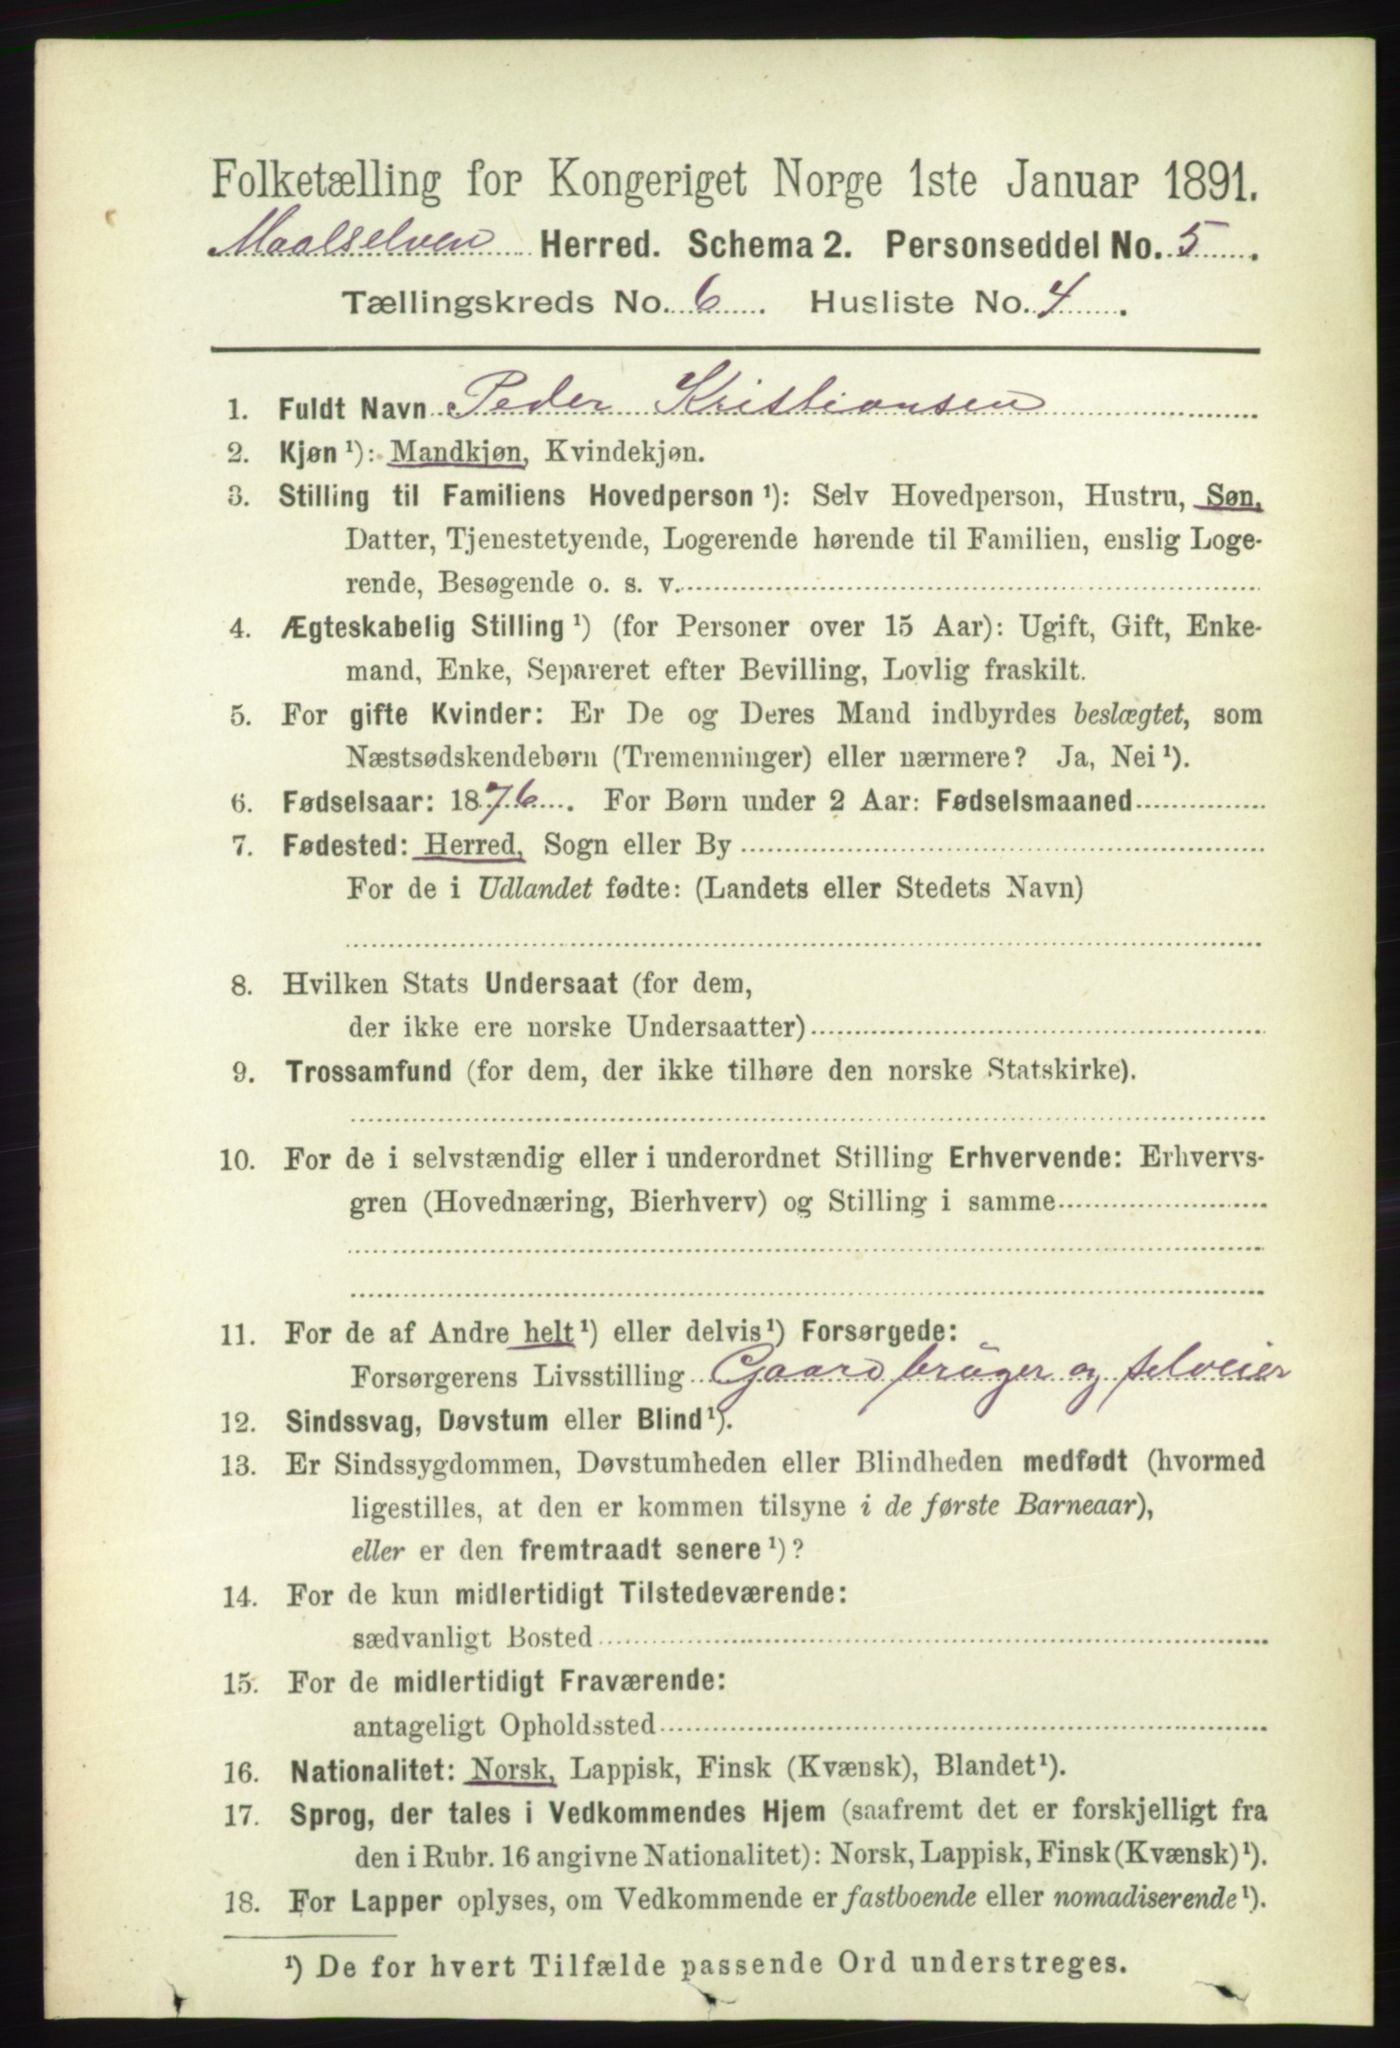 Folketælling for Kongeriget Norge 1ste Januar 1891.
Maalselven Herred. Schema 2. Personseddel No. 5.
Tællingskreds No. 6. Husliste No. 4.
1. Fuldt Navn Peder Kristiansen
2. Kjøn¹): Mandkjøn, Kvindekjøn.
3. Stilling til Familiens Hovedperson¹): Selv Hovedperson, Hustru, Søn,
Datter, Tjenestetyende, Logerende hørende til Familien, enslig Loge-
rende, Besøgende o. s. v.
4. Ægteskabelig Stilling¹) (for Personer over 15 Aar): Ugift, Gift, Enke-
mand, Enke, Separeret efter Bevilling, Lovlig fraskilt.
5. For gifte Kvinder: Er De og Deres Mand indbyrdes beslægtet, som
Næstsødskendebørn (Tremenninger) eller nærmere? Ja, Nei¹).
6. Fødselsaar: 1876. For Børn under 2 Aar: Fødselsmaaned
7. Fødested: Herred, Sogn eller By
For de i Udlandet fødte: (Landets eller Stedets Navn)
8. Hvilken Stats Undersaat (for dem,
der ikke ere norske Undersaatter)
9. Trossamfund (for dem, der ikke tilhøre den norske Statskirke).
10. For de i selvstændig eller i underordnet Stilling Erhvervende: Erhvervs-
gren (Hovednæring, Bierhverv) og Stilling i samme
11. For de af Andre helt¹) eller delvis¹) Forsørgede:
Forsørgerens Livsstilling Gaardbrüger og selveier
12. Sindssvag, Døvstum eller Blind¹).
13. Er Sindssygdommen, Døvstumheden eller Blindheden medfødt (hvormed
ligestilles, at den er kommen tilsyne i de første Barneaar),
eller er den fremtraadt senere¹)?
14. For de kun midlertidigt Tilstedeværende:
sædvanligt Bosted
15. For de midlertidigt Fraværende:
antageligt Opholdssted
16. Nationalitet: Norsk, Lappisk, Finsk (Kvænsk), Blandet¹).
17. Sprog, der tales i Vedkommendes Hjem (saafremt det er forskjelligt fra
den i Rubr. 16 angivne Nationalitet): Norsk, Lappisk, Finsk (Kvænsk)¹).
18. For Lapper oplyses, om Vedkommende er fastboende eller nomadiserende¹).
¹) De for hvert Tilfælde passende Ord understreges.